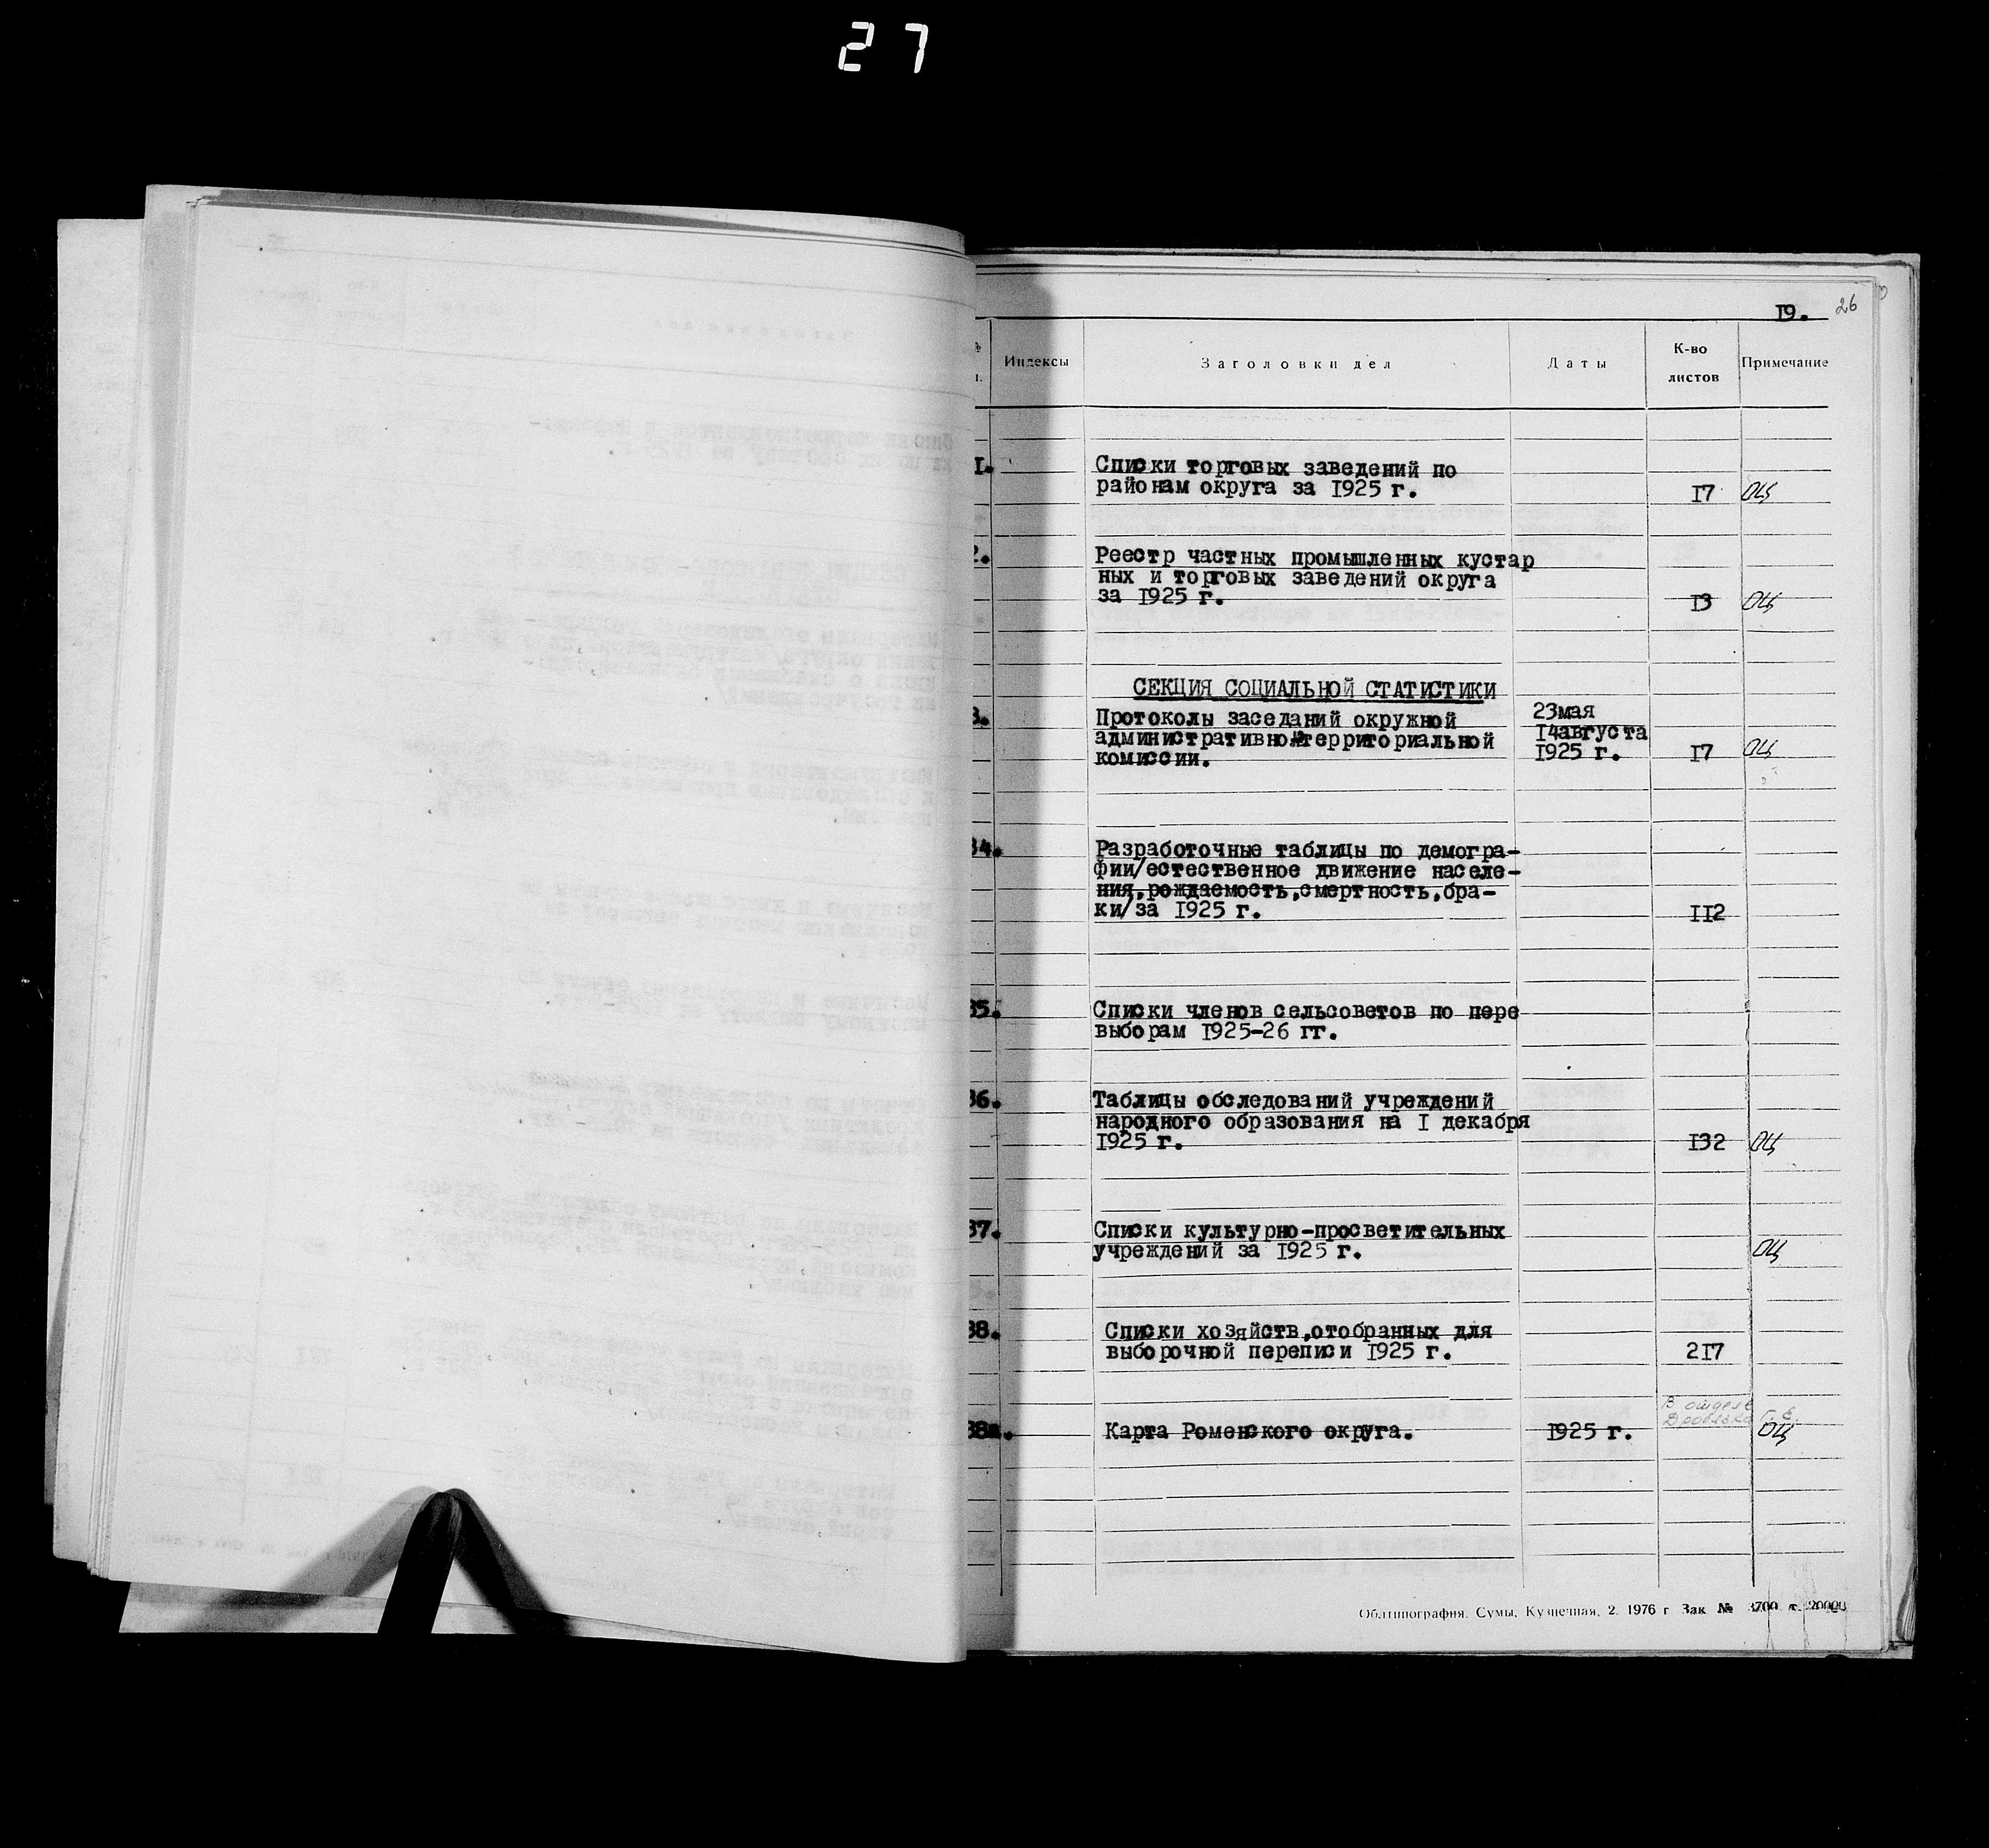 27
19. 26
Индексы Заголовки дел Даты К-во листов Примечание
1. Списки торговых заведений по
районам округа за 1925 г. 17 ОЦ
2. Реестр частных промышленных кустар
ных и торговых заведений округа
за 1925 г. 13 ОЦ
СЕКЦИЯ СОЦИАЛЬНОЙ СТАТИСТИКИ
3. Протоколы заседаний окружной 23мая
административно-территориальной 14августа
комиссии. 1925 г. 17 ОЦ
34. Разработочные таблицы по демогра-
фии/естественное движение населе-
ния,рождаемость,смертность,бра-
ки/за 1925 г. 112
35. Списки членов сельсоветов по пере
выборам 1925-26 гг.
36. Таблицы обследований учреждений
народного образования на 1 декабря
1925 г. 132 ОЦ
37. Списки культурно-просветительных
учреждений за 1925 г. ОЦ
38. Списки хозяйств,отобранных для
выборочной переписи 1925 г. 217
В отделе
38а. Карта Роменского округа. 1925 г. ОЦ
Облтипография. Сумы, Кузнечная, 2. 1976 г Зак № 3700 т. 20000